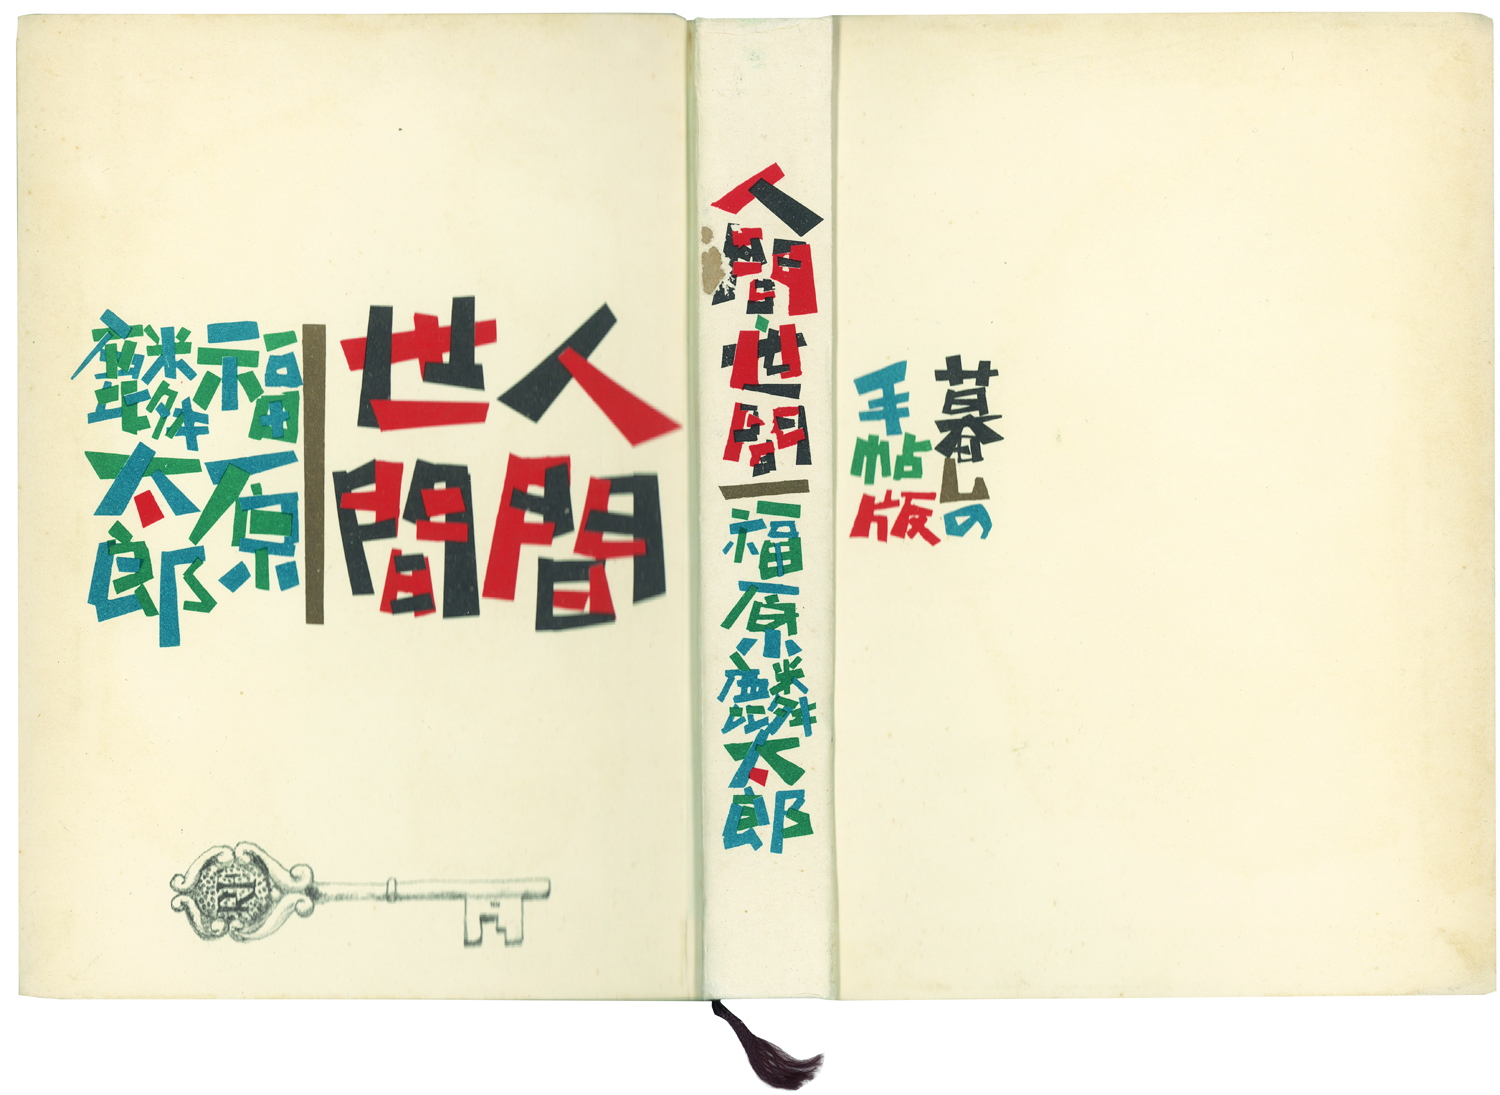 人間
世間
福原
麟太郎
人間・世間
福原麟太郎
暮しの
手帖版